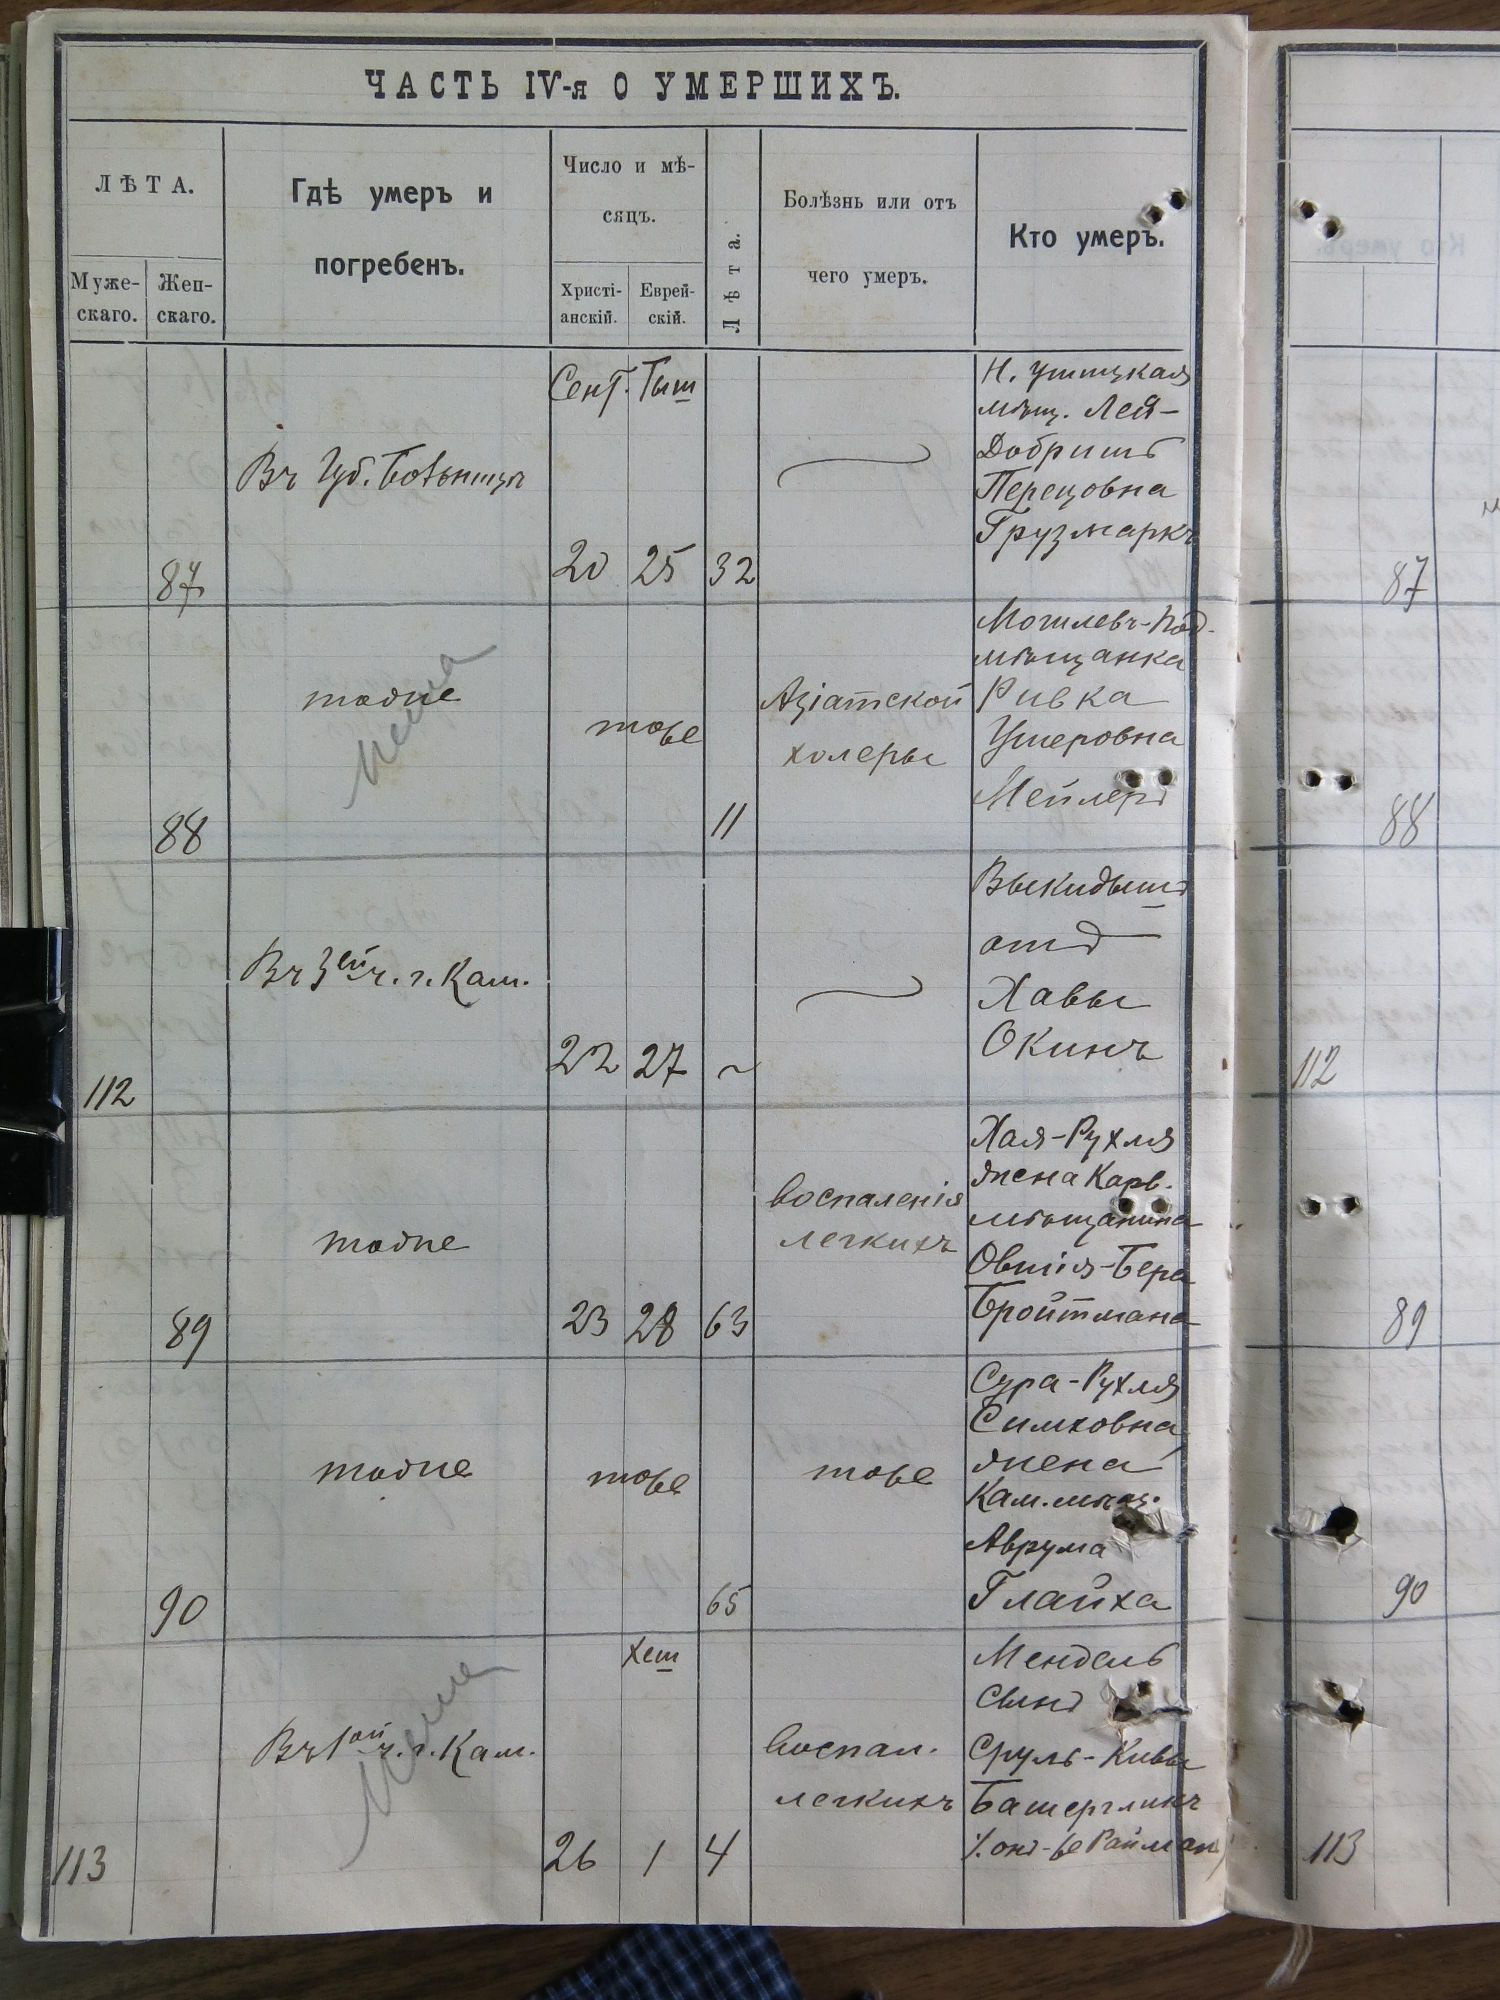 ЧАСТЬ IV-я О УМЕРШИХЪ.
ЛѢТА.
Муже-
скаго.
Жен-
скаго.
Гдѣ умеръ и
погребенъ.
Число и мѣ-
сяцъ.
Христі-
анскій.
Еврей-
скій.
Лѣта.
Болѣзнь или отъ
чего умеръ.
Кто умеръ.
87
Въ Губ. Больницѣ
Сент. Тыш
20 25 32
Н. Ушицкая
мѣщ. Лея-
Добришъ
Перецовна
Грузмаркъ
87
88
тодпе
тоже
11
Азіатской
холеры
Могилевъ-Под.
мѣщанка
Ривка
Ушеровна
Мейлеръ
88
112
Въ 3ей ч. г. Кам.
22 27 ~
Выкидышъ
отъ
Хавы
Окинъ
112
89
тодпе
23 28 63
воспаленія
легкихъ
Хая-Рухля
жена Карв.
мѣщанина
Овшія-Бера
Бройтмана
89
90
тодпе
тоже
65
тоже
Сура-Рухля
Симховна
жена
Кам. мѣщ.
Аврума
Глайха
90
113
Въ 1ой ч. г. Кам.
Хеш
26 1 4
Воспал.
легкихъ
Мендель
сынъ
Сруль-Кивы
Башергликъ
(онъ-же Райман)
113